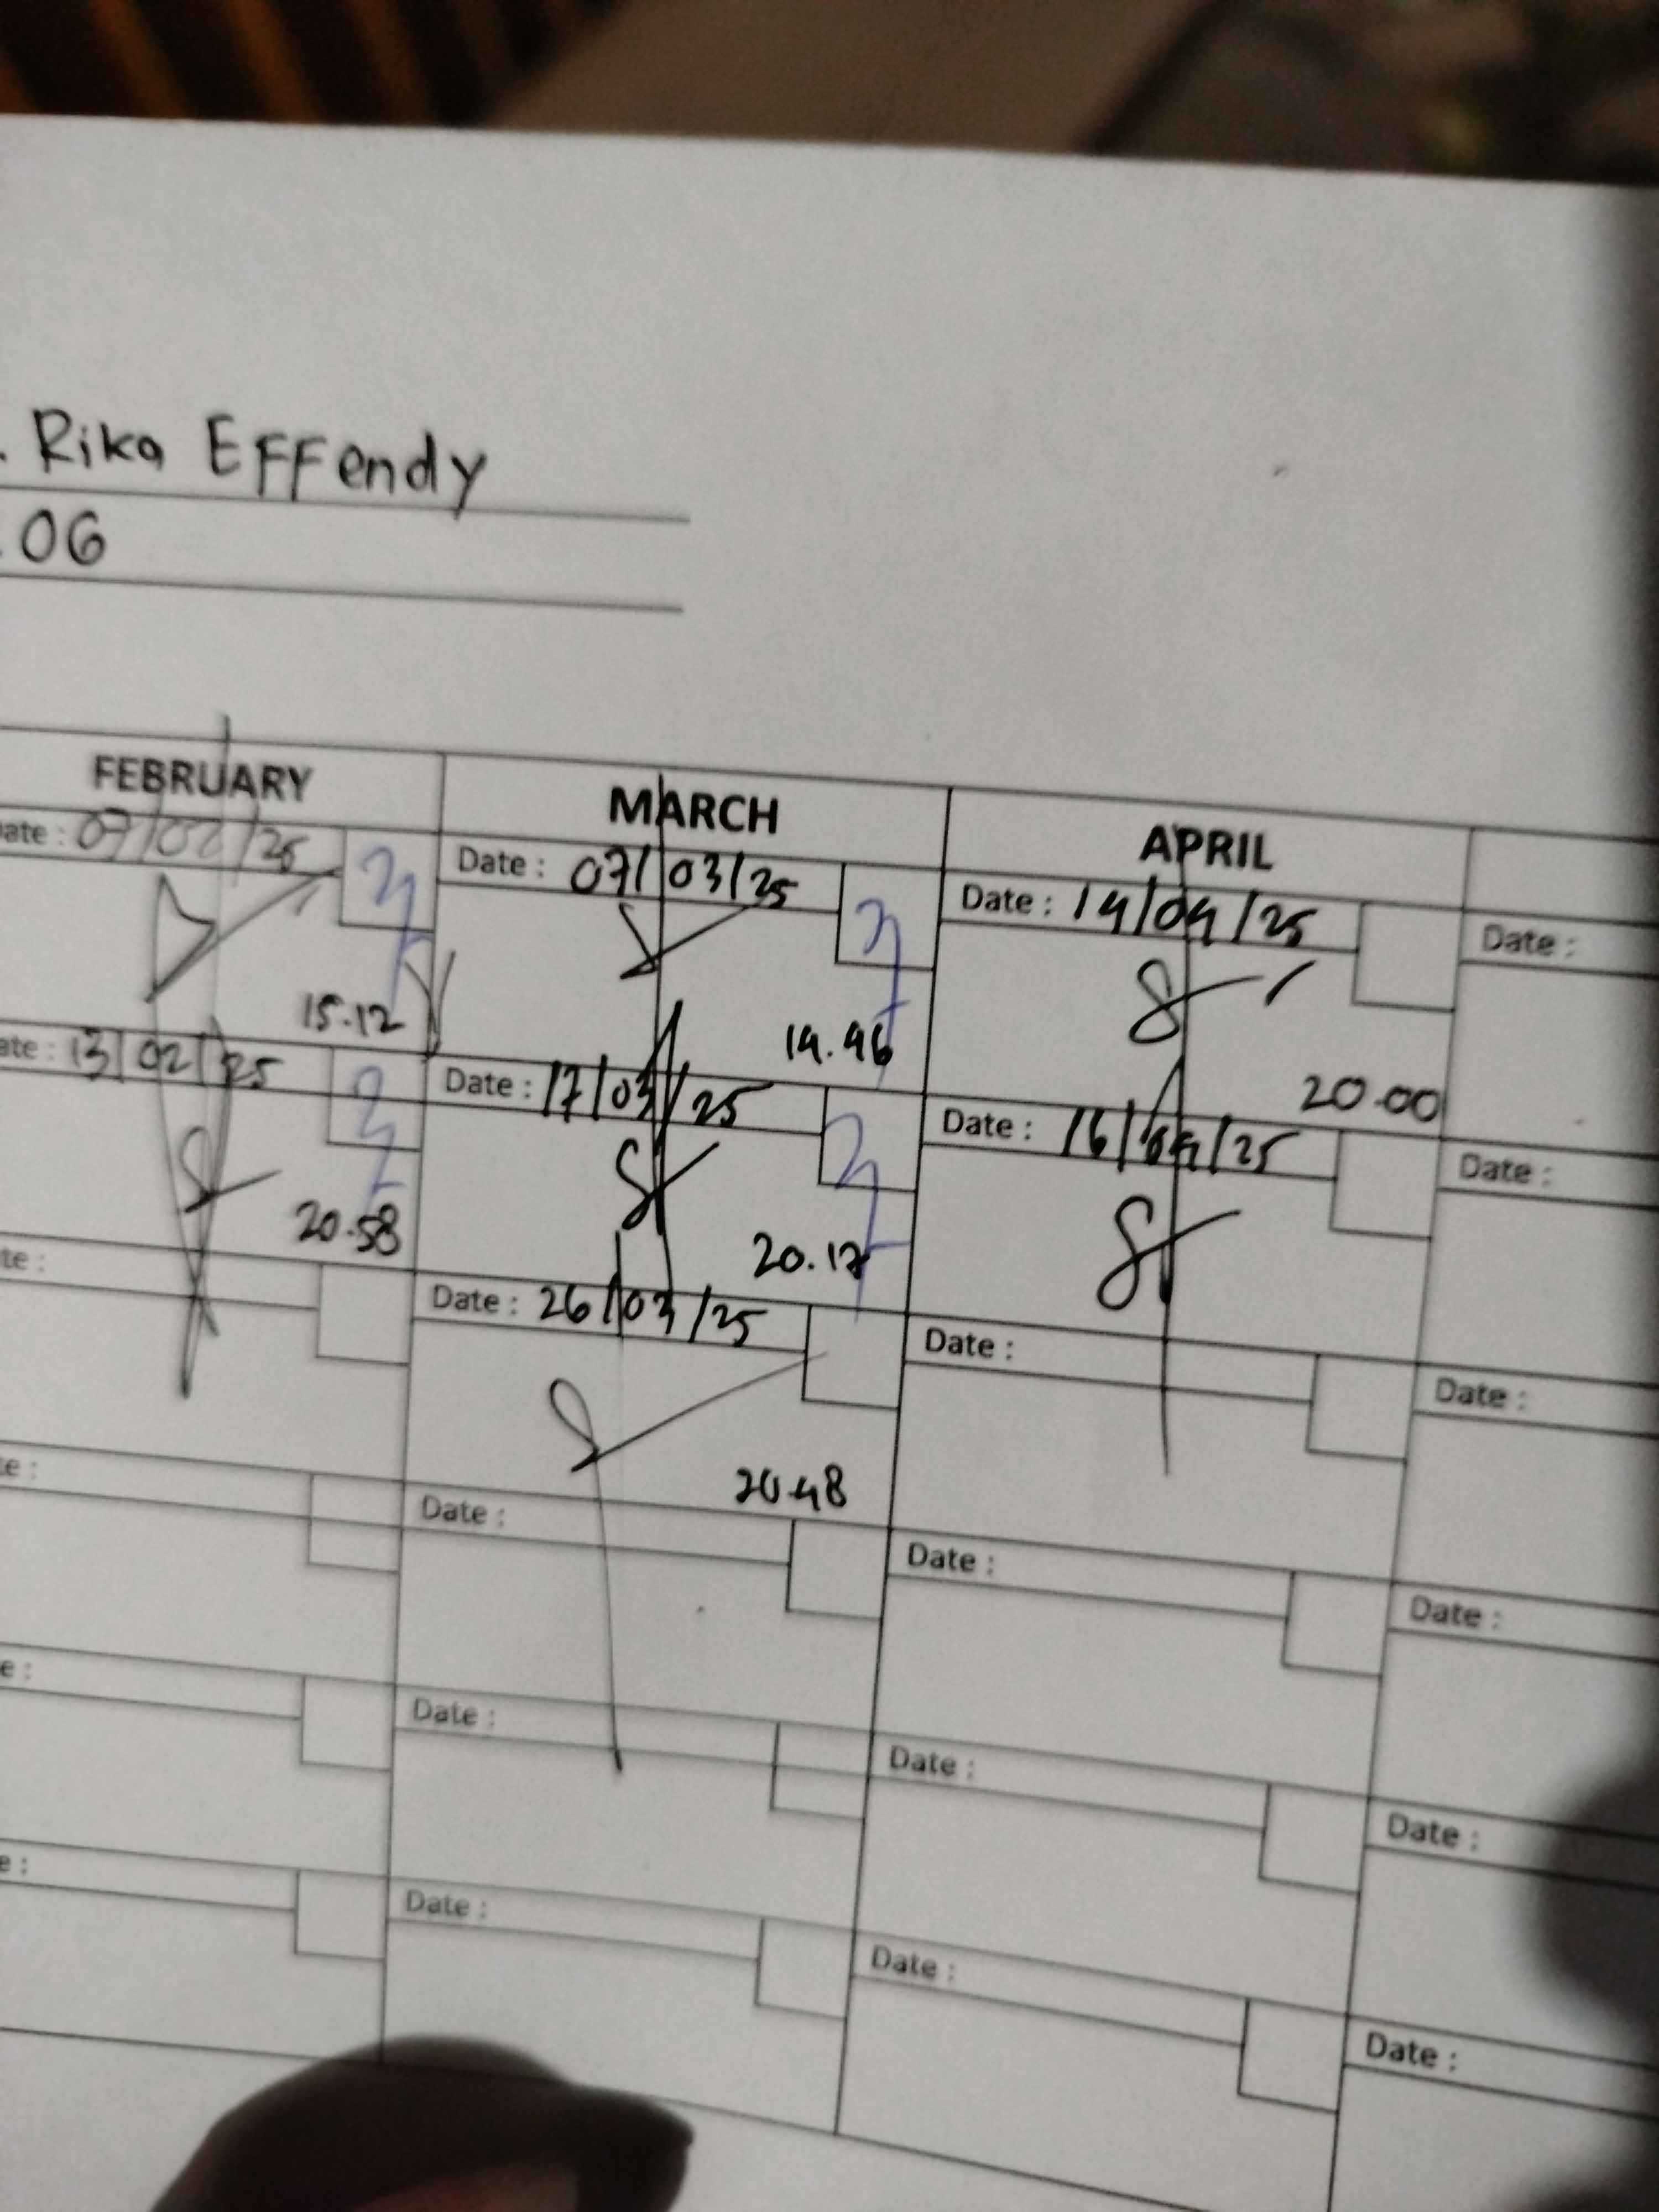 . Rika Effendy
.06
FEBRUARY MARCH APRIL
ate : 07/02/25 Date : 07/03/25 Date : 14/04/25 Date :
15.12 14.46 20.00
ate : 13/02/25 Date : 17/03/25 Date : 16/04/25 Date :
20.58 20.17
te : Date : 26/03/25 Date : Date :
20.48
te : Date : Date : Date :
e : Date : Date : Date :
e : Date : Date : Date :